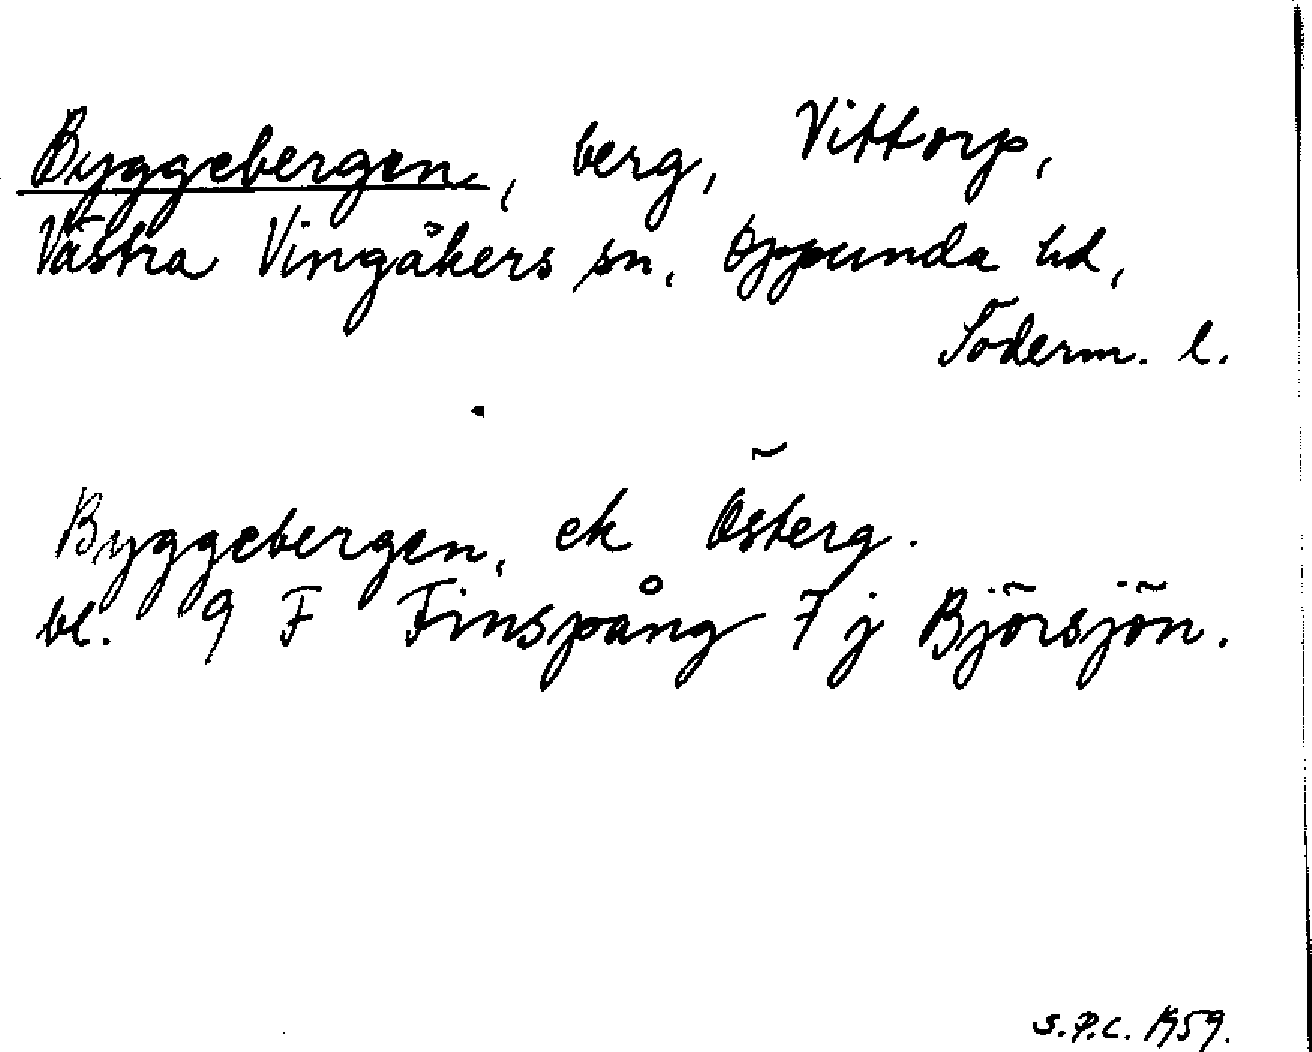 Byggebergen, berg, Vittorp,
Västra Vingåkers sn, Oppunda hd,
Söderm. l.
Byggebergen, ek Österg.
bl. 9 F Finspång 7 j Björsjön.
S.P.C. 1959.